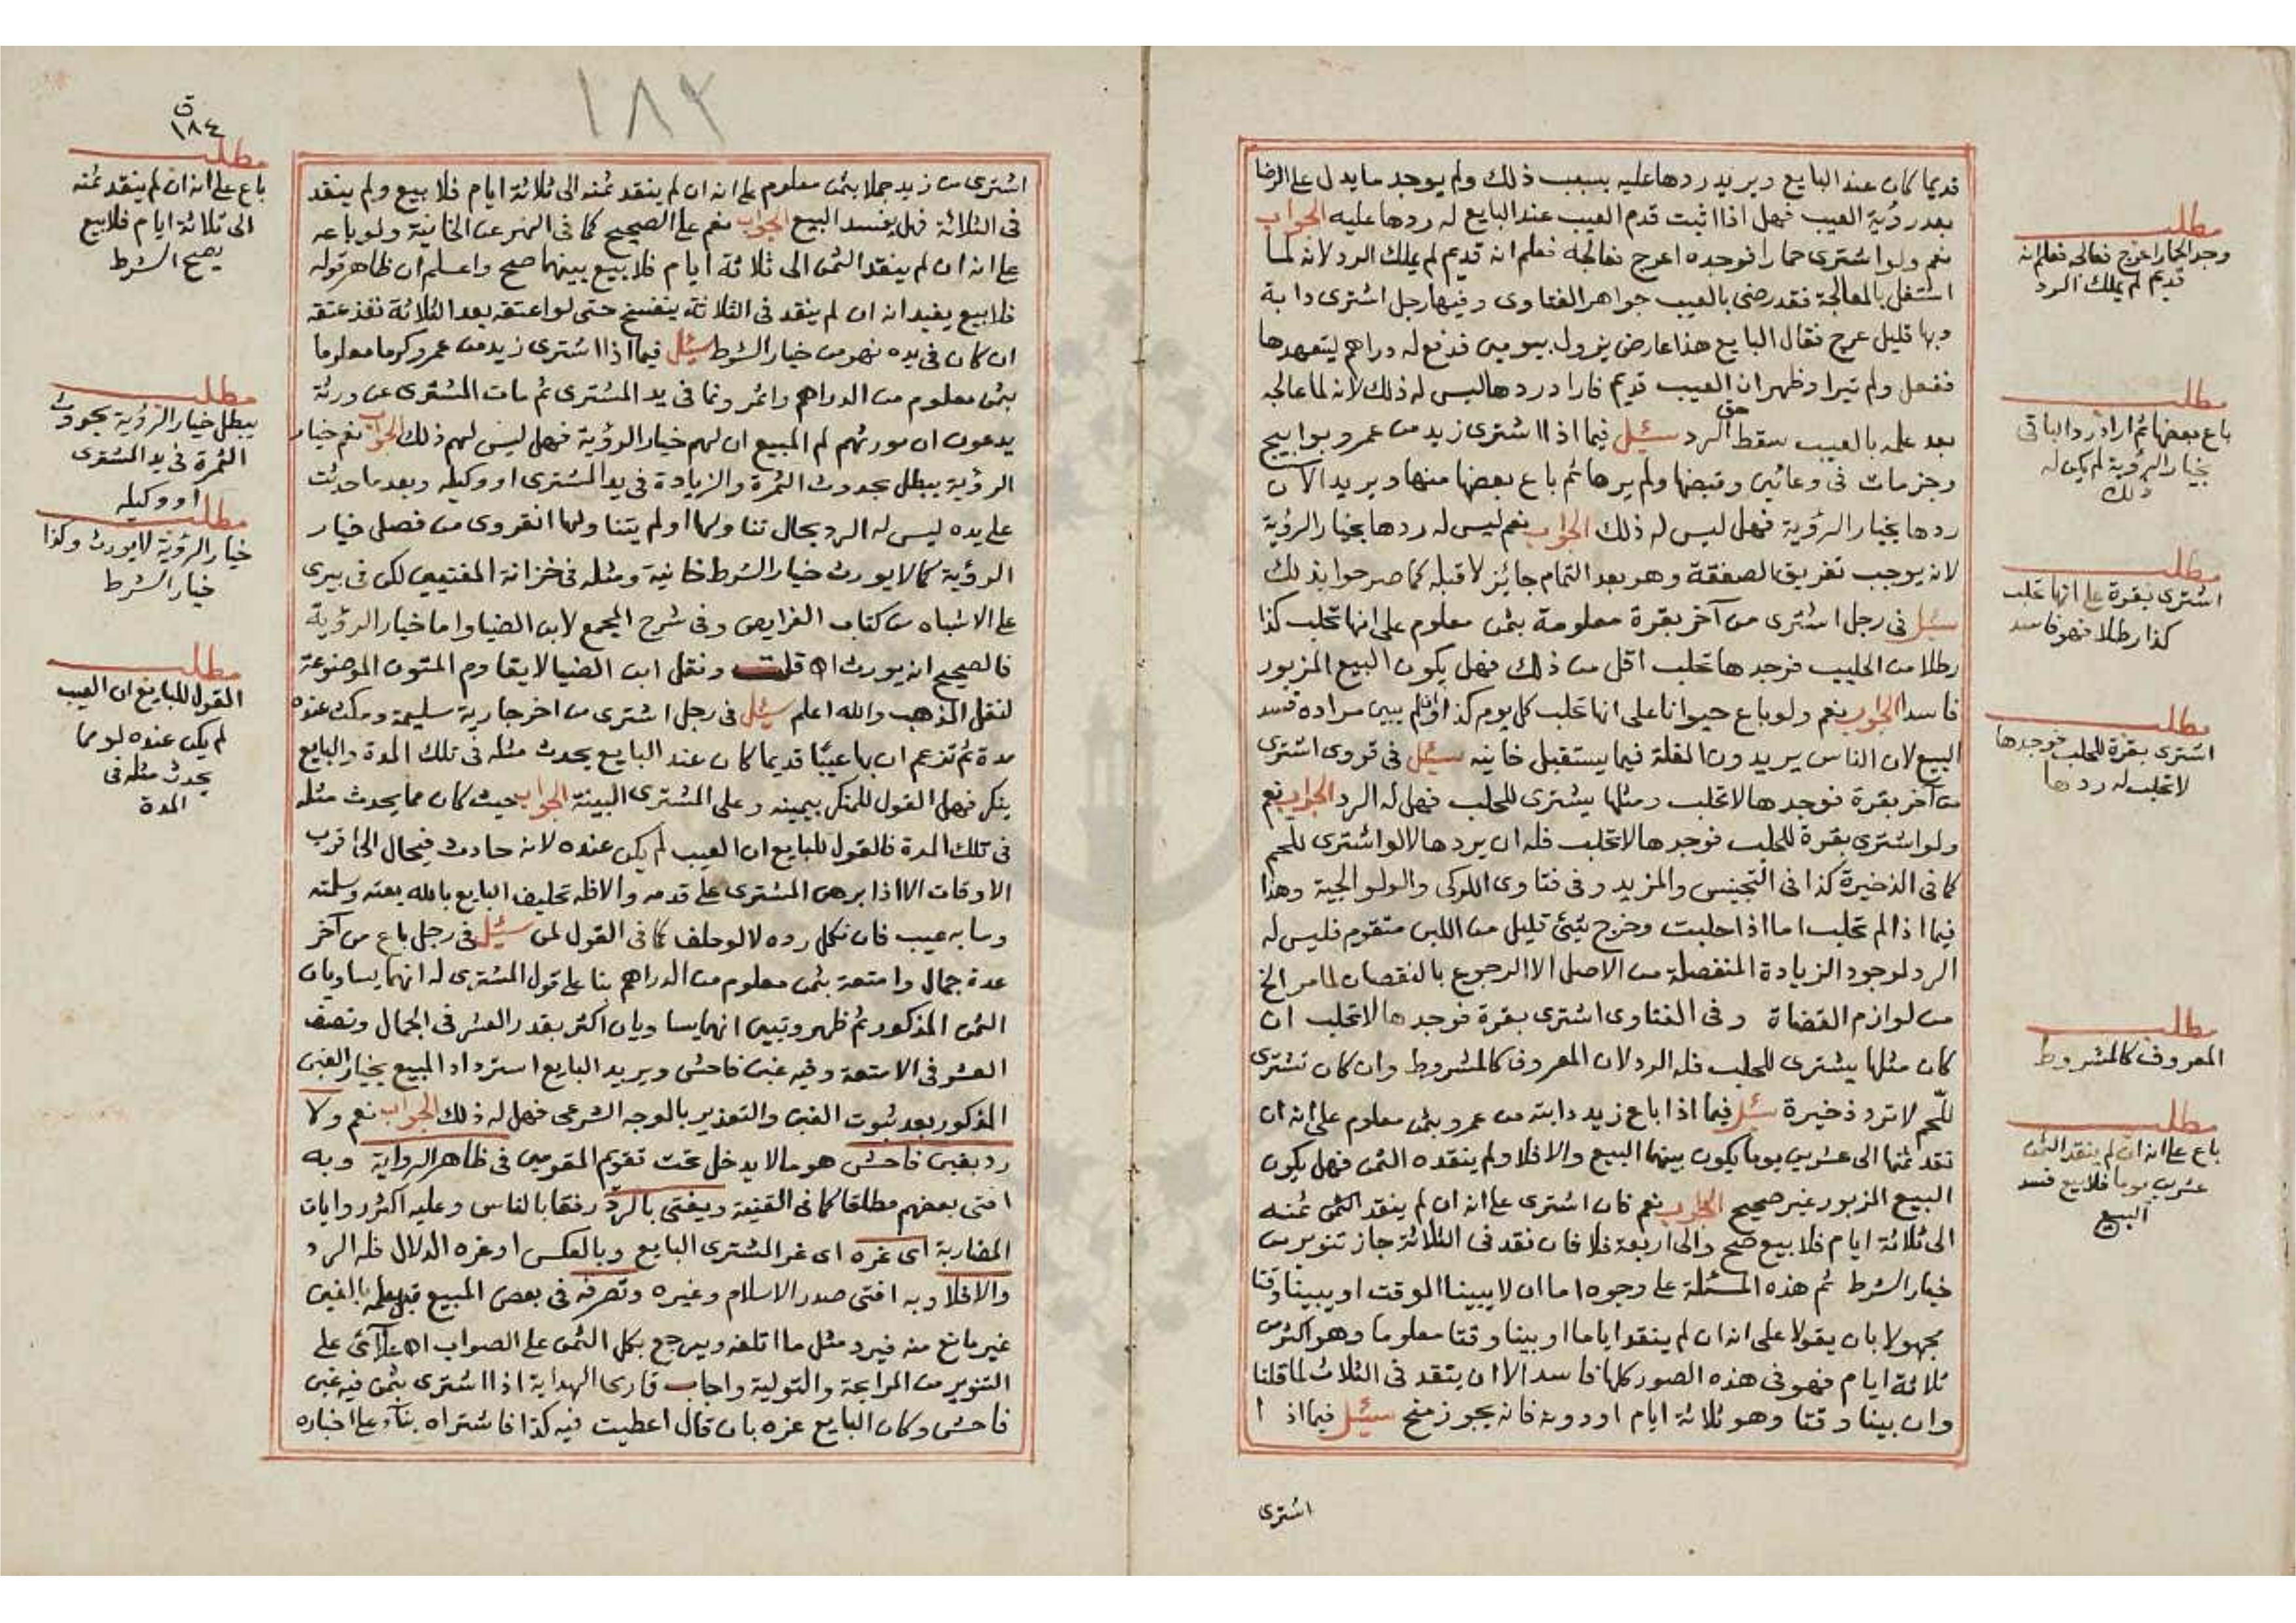 قديما كان عند البايع ويريد ردها عليه بسبب ذلك ولم يوجد ما يدل على الرضا
بعد رؤية العيب فهل اذا اثبت قدم العيب عند البايع له ردها عليه الجواب
نعم ولو اشترى حمارا فوجده اعرج فعالجه فعلم انه قديم لم يملك الرد لانه لما
اشتغل بالمعالجة فقد رضى بالعيب جواهر الفتاوى وفيها رجل اشترى دابة
وبها قليل عرج فقال البايع هذا عارض يزول بيومين فدفع له دراهم ليتعهدها
ففعل ولم تبرا وظهر ان العيب قديم فاراد ردها ليس له ذلك لانه لما عالجه
بعد علمه بالعيب سقط حق الرد سئل فيما اذا اشترى زيد من عمرو بوابيج
وجزمات فى وعائين وقبضها ولم يرها ثم باع بعضها منها ويريد الآن
ردها بخيار الرؤية فهل ليس له ذلك الجواب نعم ليس له ردها بخيار الرؤية
لانه يوجب تفريق الصفقة وهو بعد التمام جايز لا قبله كما صرحوا بذلك
سئل فى رجل اشترى من آخر بقرة معلومة بثمن معلوم على انها تحلب كذا
رطلا من الحليب فوجدها تحلب اقل من ذلك فهل يكون البيع المزبور
فاسدا الجواب نعم ولو باع حيوانا على انها تحلب كل يوم كذا او لم يبين مراده فسد
البيع لان الناس يريدون الغلة فيما يستقبل خانيه سئل فى قروى اشترى
من آخر بقرة فوجدها لا تحلب ومثلها يشترى للحلب فهل له الرد الجواب نعم
ولو اشترى بقرة للحلب فوجدها لا تحلب فله ان يردها لا لو اشترى للحم
كما فى الذخيرة كذا فى التجنيس والمزيد وفى فتاوى اللوكى والولوالجية وهذا
فيما اذا لم تحلب اما اذا حلبت وخرج شئ قليل من اللبن متقوم فليس له
الرد لوجود الزيادة المنفصلة من الاصل الا الرجوع بالنقصان لما مر الخ
من لوازم القضاة وفى الفتاوى اشترى بقرة فوجدها لا تحلب ان
كان مثلها يشترى للحلب فله الرد لان المعروف كالمشروط وان كان تشترى
للحم لا ترد ذخيرة سئل فيما اذا باع زيد دابته من عمرو بثمن معلوم على انه ان
نقد ثمنها الى عشرين يوما يكون بينهما البيع والا فلا ولم ينقده الثمن فهل يكون
البيع المزبور غير صحيح الجواب نعم فان اشترى على انه ان لم ينقد الثمن ثمنه
الى ثلاثة ايام فلا بيع صح والى اربعة فلا فان نقد فى الثلاثة جاز تنوير من
خيار الشرط ثم هذه المسئلة على وجوه اما ان لا يبينا الوقت او يبينا وقتا
مجهولا بان يقولا على انه ان لم ينقد اياما او بينا وقتا معلوما وهو اكثر من
ثلاثة ايام فهو فى هذه الصور كلها فاسد الا ان ينقد فى الثلاث لما قلنا
وان بينا وقتا وهو ثلاثة ايام او دونه فانه يجوز منح سئل فيما اذا
اشترى
مطلب
وجد الحمار اعرج فعالجه فعلم انه
قديم لم يملك الرد
مطلب
باع بعضها ثم اراد رد الباقى
بخيار الرؤية لم يكن له
ذلك
مطلب
اشترى بقرة على انها تحلب
كذا رطلا فهو فاسد
مطلب
اشترى بقرة للحلب فوجدها
لا تحلب له ردها
مطلب
المعروف كالمشروط
مطلب
باع على انه ان لم ينقد الثمن
عشرين يوما فلا بيع فسد
البيع
١٨٢
ق
١٨٤
اشترى من زيد جملا بثمن معلوم على انه ان لم ينقد ثمنه الى ثلاثة ايام فلا بيع ولم ينقد
فى الثلاثة فهل يفسد البيع الجواب نعم على الصحيح كما فى النهر عن الخانية ولو باعه
على انه ان لم ينقد الثمن الى ثلاثة ايام فلا بيع بينهما صح واعلم ان ظاهر قوله
فلا بيع يفيد انه ان لم ينقد فى الثلاثة ينفسخ حتى لو اعتقه بعد الثلاثة نفذ عتقه
ان كان فى يده نهر من خيار الشرط سئل فيما اذا اشترى زيد من عمرو كرما معلوما
بثمن معلوم من الدراهم واثمر ونما فى يد المشترى ثم مات المشترى عن ورثة
يدعون ان مورثهم لم المبيع ان لهم خيار الرؤية فهل ليس لهم ذلك الجواب نعم خيار
الرؤية يبطل بحدوث الثمرة والزيادة فى يد المشترى او وكيله وبعد ما حدثت
على يده ليس له الرد بحال تناولها او لم يتناولها انقروى من فصلى خيار
الرؤية كما لا يورث خيار الشرط خانية ومثله فى خزانة المفتيين لكن فى بيرى
على الاشباه من كتاب الفرايض وفى شرح المجمع لابن الضيا واما خيار الرؤية
فالصحيح انه يورث اه قلت ونقل ابن الضيا لا يقاوم المتون الموضوعة
لنقل المذهب والله اعلم سئل فى رجل اشترى من اخر جارية سليمة ومكث عنده
مدة ثم تزعم ان بها عيبًا قديما كان عند البايع يحدث مثله فى تلك المدة والبايع
ينكر فهل القول للمنكر بيمينه وعلى المشترى البينة الجواب حيث كان مما يحدث مثله
فى تلك المدة فالقول للبايع ان العيب لم يكن عنده لانه حادث فيحال الى اقرب
الاوقات الا اذا برهن المشترى على قدمه والا فله تحليف البايع بالله بعته وسلمته
وما به عيب فان نكل رده لا لو حلف كما فى القول لمن سئل فى رجل باع من آخر
عدة جمال وامتعة بثمن معلوم من الدراهم بنا على قول المشترى له انهما يساويان
الثمن المذكور ثم ظهر وتبين انهما يساويان اكثر بقدر العشر فى الجمال ونصف
العشر فى الامتعة وفيه غبن فاحش ويريد البايع استرداد المبيع بخيار الغبن
المذكور بعد ثبوت الغبن والتغرير بالوجه الشرعى فهل له ذلك الجواب نعم ولا
رد بغبن فاحش هو ما لا يدخل تحت تقويم المقومين فى ظاهر الرواية وبه
افتى بعضهم مطلقا كما فى القنية ويفتى بالرد رفقا بالناس وعليه اكثر روايات
المضاربة اى غره اى غر المشترى البايع وبالعكس او غره الدلال فله الرد
والا فلا وبه افتى صدر الاسلام وغيره وتصرفه فى بعض المبيع قبل علمه بالغبن
غير مانع منه فيرد مثل ما اتلفه ويرجع بكل الثمن على الصواب اه علآئى على
التنوير من المرابحة والتولية واجاب قارى الهداية اذا اشترى بثمن فيه غبن
فاحش وكان البايع غره بان قال اعطيت فيه كذا فاشتراه بنآء على اخباره
مطلب
باع على انه ان لم ينقد ثمنه
الى ثلاثة ايام فلا بيع
يصح الشرط
مطلب
يبطل خيار الرؤية بحدوث
الثمرة فى يد المشترى
او وكيله
مطلب
خيار الرؤية لا يورث وكذا
خيار الشرط
مطلب
القول للبايع ان العيب
لم يكن عنده لو مما
يحدث مثله فى
المدة